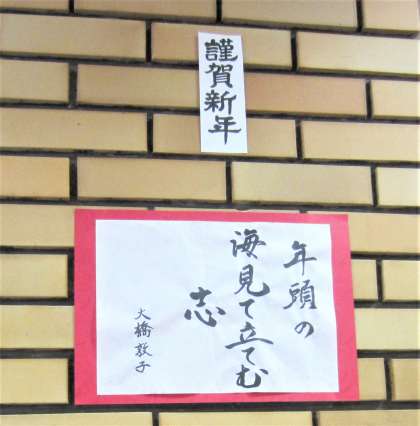 謹賀新年
年頭の
海見て立てむ
志
大橋敦子